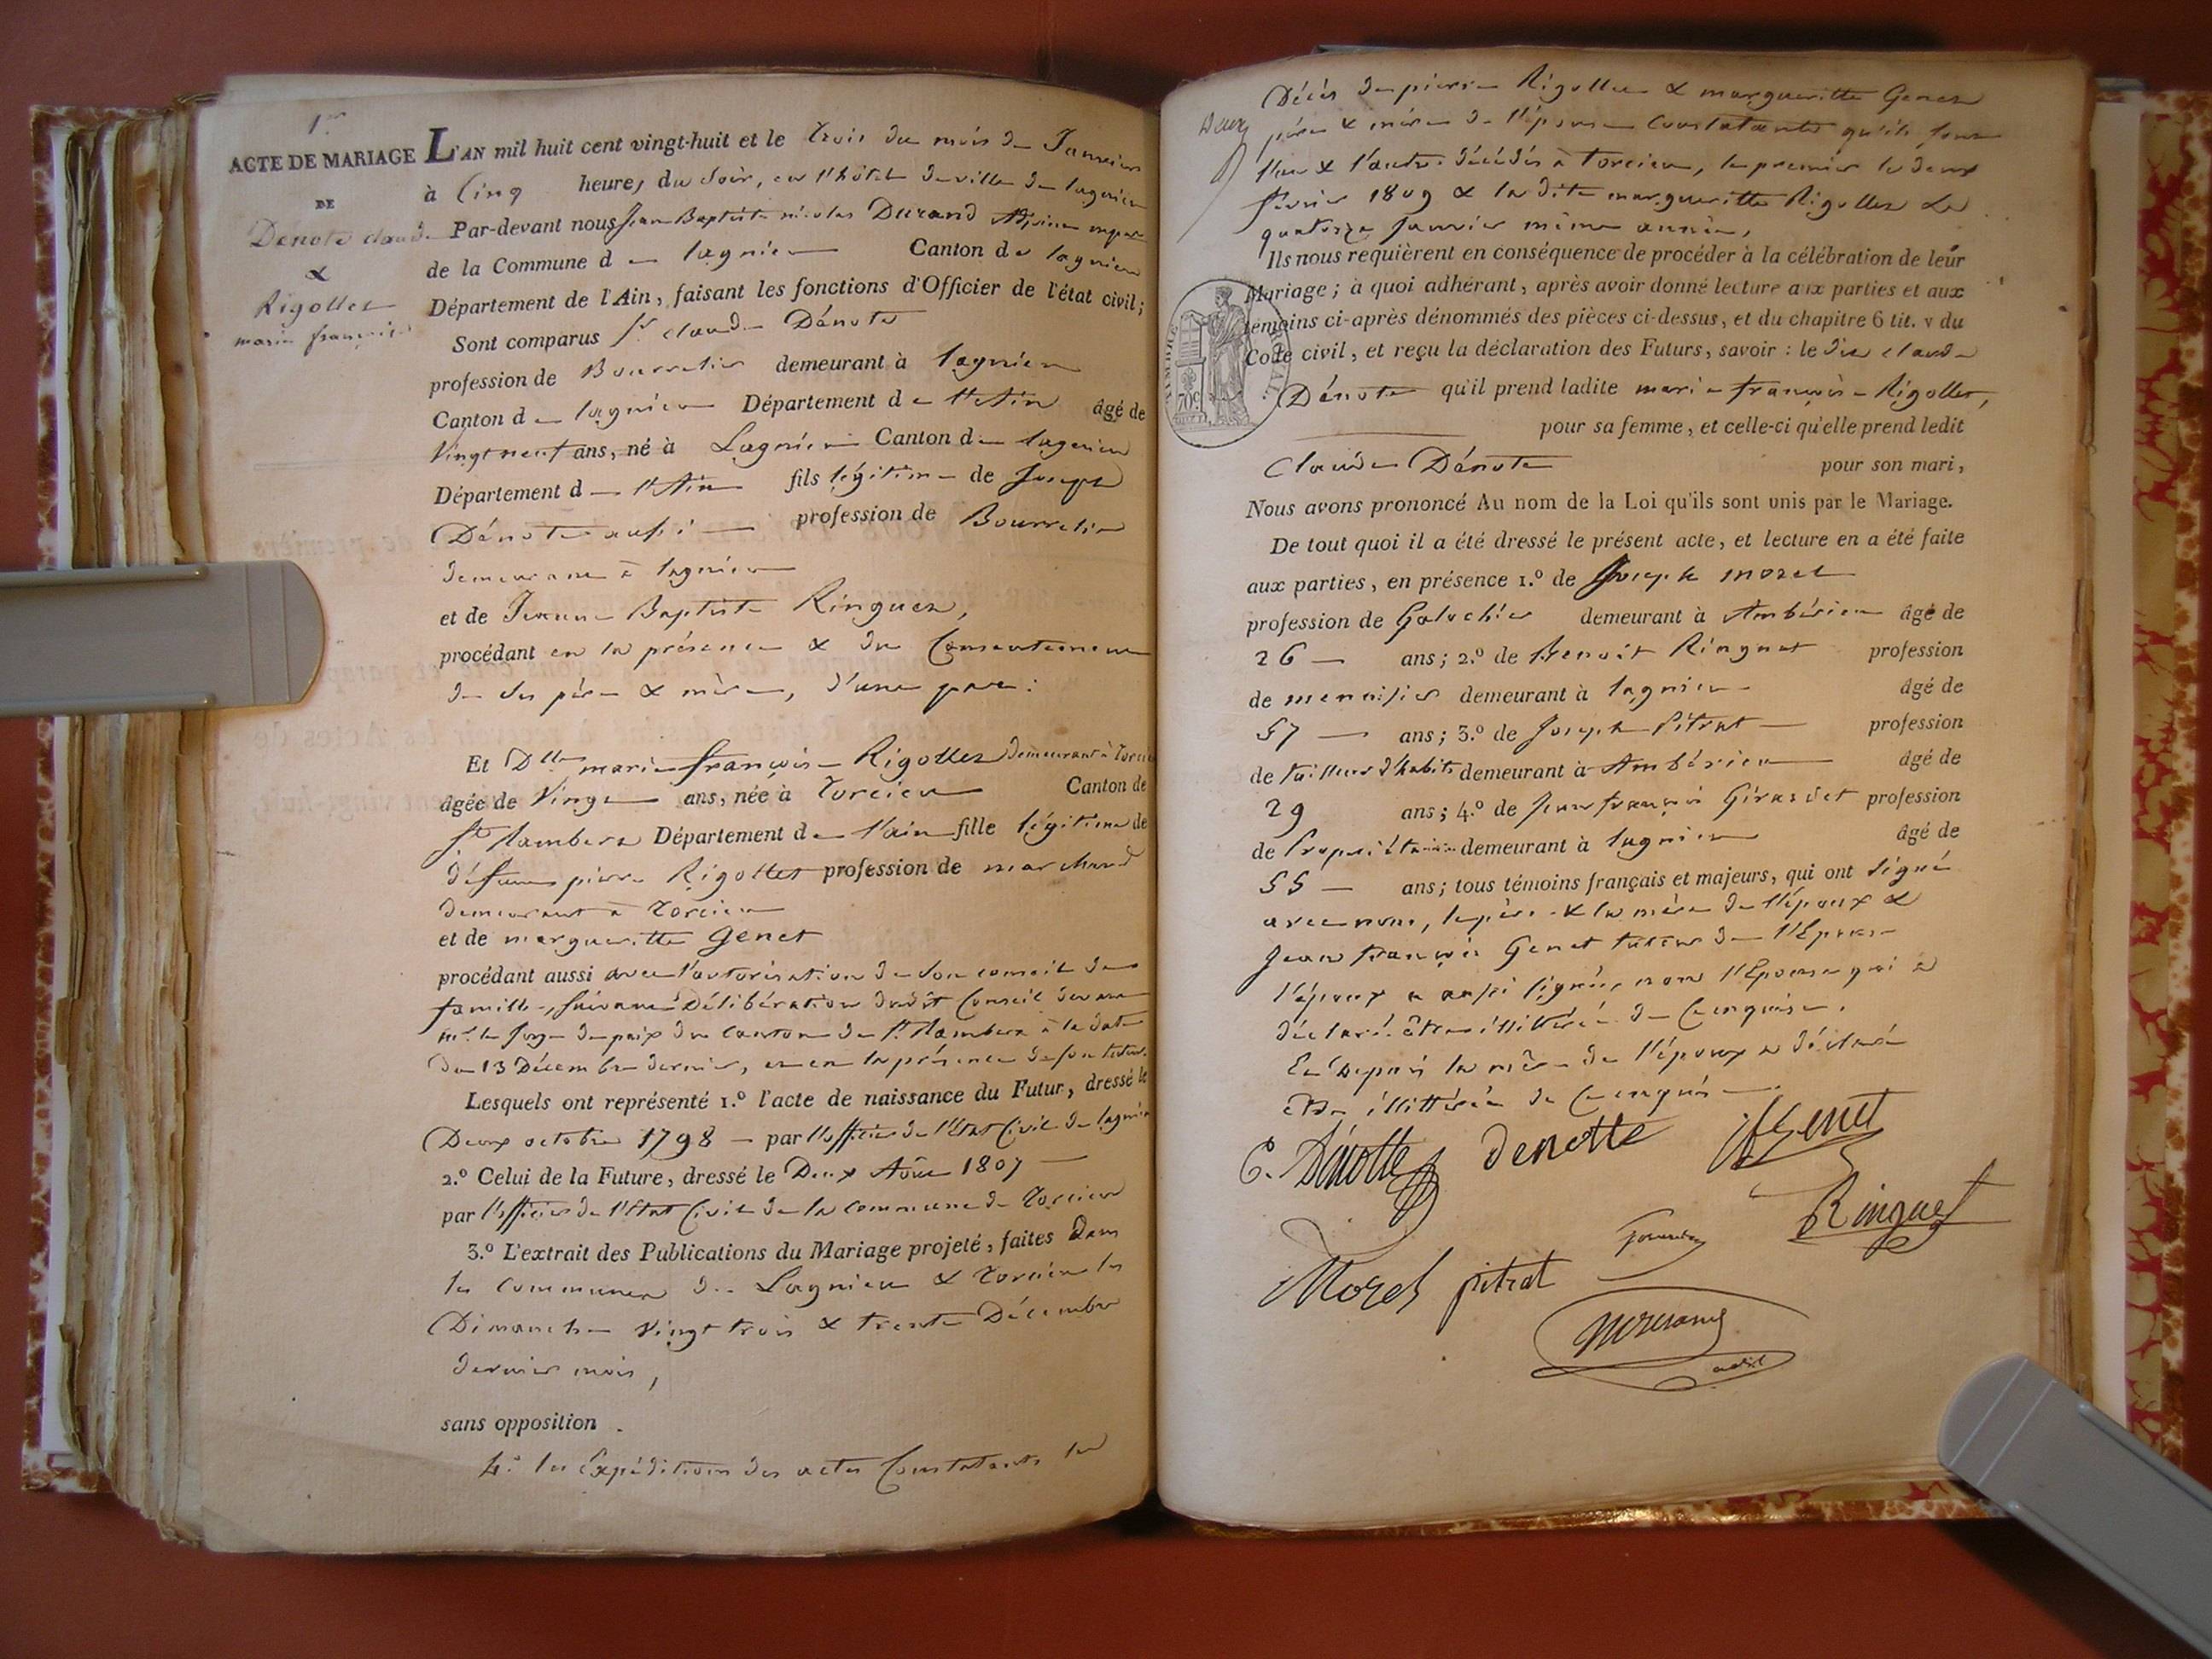 1er
ACTE DE MARIAGE
DE
Denote claude
&
Rigollet
marie françoise
L'AN mil huit cent vingt-huit et le trois du mois de Janvier
à Cinq heures du soir, en l'hôtel de ville de lagnieu
Par-devant nous Jean Baptiste nicolas Durand Adjoint
de la Commune de lagnieu Canton de lagnieu
Département de l'Ain, faisant les fonctions d'Officier de l'état civil;
Sont comparus Sr claude Dénote
profession de Bourrelier demeurant à lagnieu
Canton de lagnieu Département de l'Ain âgé de
Vingt neuf ans, né à Lagnieu Canton de lagnieu
Département de l'Ain fils légitime de Joseph
Dénote aussi profession de Bourrelier
demeurant à lagnieu
et de Jeanne Baptiste Ringuet,
procédant en la présence & du Consentement
de ses père & mère, d'une part:
Et Dlle marie françoise Rigollet demeurant à Torcieu
âgée de Vingt ans, née à Torcieu Canton de
St Lambert Département de l'ain fille légitime de
défunt pierre Rigollet profession de marchand
demeurant à Torcieu
et de margueritte Genet
procédant aussi avec l'autorisation de son conseil de
famille, suivant Délibération dudit Conseil devant
mr le Juge de paix du canton de St Rambert à la date
du 13 Décembre dernier, et en la présence de son tuteur.
Lesquels ont représenté 1.º l'acte de naissance du Futur, dressé le
Deux octobre 1798 — par l'officier de l'état Civil de lagnieu
2.º Celui de la Future, dressé le Deux Août 1807 —
par l'officier de l'état Civil de la commune de Torcieu
3.º L'extrait des Publications du Mariage projeté, faites dans
les communes de Lagnieu & Torcieu les
Dimanche Vingt trois & trente Décembre
dernier mois,
sans opposition.
4.º les Expéditions des actes Constatants le
Deux
Décès de pierre Rigollet & margueritte Genet
père & mère de l'épouse Constatants qu'ils sont
l'un & l'autre décédés à Torcieu, le premier le deux
février 1809 & la dite margueritte Rigollet le
quatorze Janvier même année,
Ils nous requièrent en conséquence de procéder à la célébration de leur
Mariage; à quoi adhérant, après avoir donné lecture aux parties et aux
témoins ci-après dénommés des pièces ci-dessus, et du chapitre 6 tit. v du
Code civil, et reçu la déclaration des Futurs, savoir: le dit claude
Dénote qu'il prend ladite marie françoise Rigollet,
pour sa femme, et celle-ci qu'elle prend ledit
Claude Dénote pour son mari,
Nous avons prononcé Au nom de la Loi qu'ils sont unis par le Mariage.
De tout quoi il a été dressé le présent acte, et lecture en a été faite
aux parties, en présence 1.º de Joseph morel
profession de Galochier demeurant à Ambérieu âgé de
26 — ans; 2.º de Benoit Ringuet profession
de menuisier demeurant à lagnieu âgé de
57 — ans; 3.º de Joseph Pitrat — profession
de tailleur d'habits demeurant à Ambérieu âgé de
29 ans; 4.º de Jean françois Girardet profession
de Propriétaire demeurant à lagnieu âgé de
55 — ans; tous témoins français et majeurs, qui ont signé
avec nous, le père & la mère de l'époux &
Jean françois Genet tuteur de l'Epouse
l'époux a aussi signé, non l'Epouse qui a
déclaré être illitérée de ce enquise.
Et Depuis la mère de l'époux a déclaré
être illittérée de ce enquise.
C. Dénotte denotte jfgenet
Ringuet
Morel pitrat
TIMBRE
70c